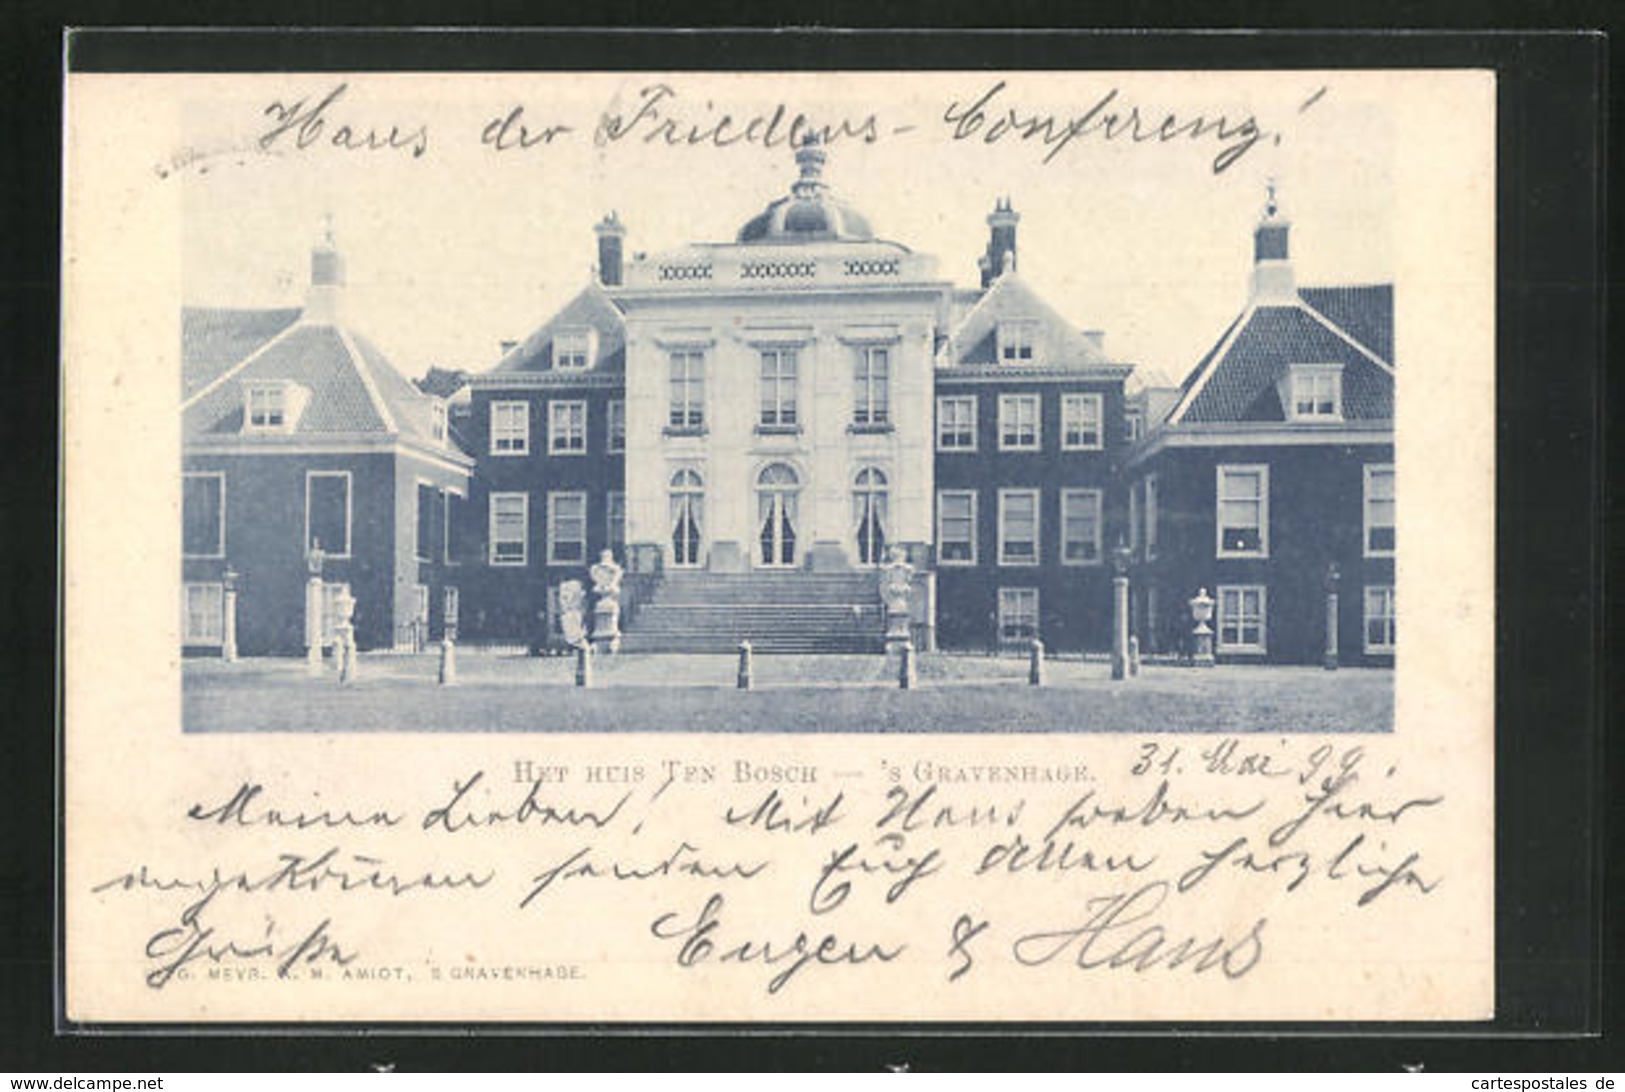 Haus der Friedens-Conferenz!
HET HUIS TEN BOSCH — 'S GRAVENHAGE.
31. Mai 99.
Meine Lieben! Mit Hans soeben hier
angekommen senden Euch allen herzliche
Grüße Eugen & Hans
UITG. MEVR. A. M. AMIOT, 'S GRAVENHAGE.
www.delcampe.net
cartespostales de